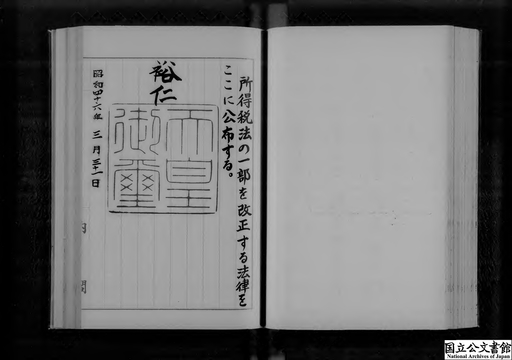 所得税法の一部を改正する法律を
ここに公布する。
裕仁
天皇
御璽
昭和四十六年三月三十一日
内閣
国立公文書館
National Archives of Japan